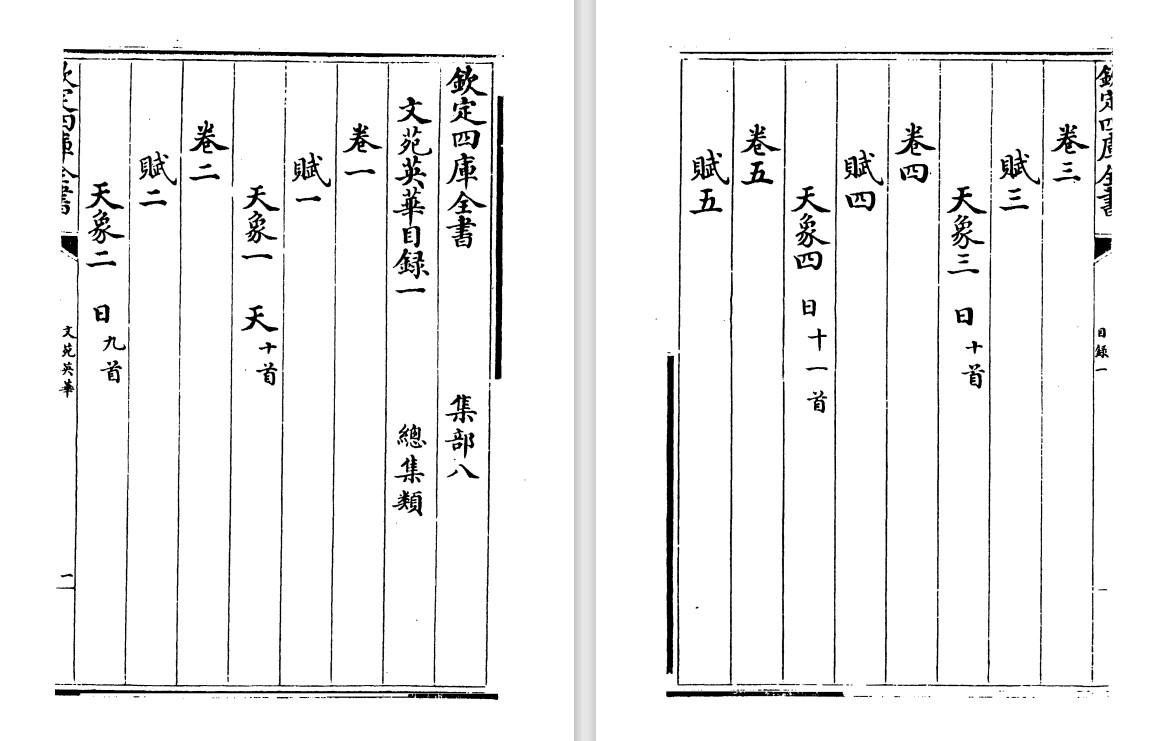 欽定四庫全書 集部八
文苑英華目録一 總集類
卷一
賦一
天象一 天十首
卷二
賦二
天象二 日九首
欽定四庫全書 文苑英華 一
欽定四庫全書 目録一
卷三
賦三
天象三 日十首
卷四
賦四
天象四 日十一首
卷五
賦五